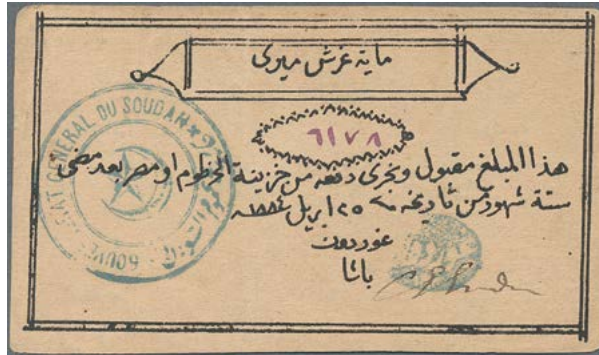 ماية غرش ميرى
٦١٧٨
هذا المبلغ مقبول ويجرى دفعه من خزينة الخرطوم او مصر بعد مضى
ستة شهور من تاريخه ٢٥ ابريل ١٨٨٤
غوردون
باشا
GOUVERNORAT GENERAL DU SOUDAN